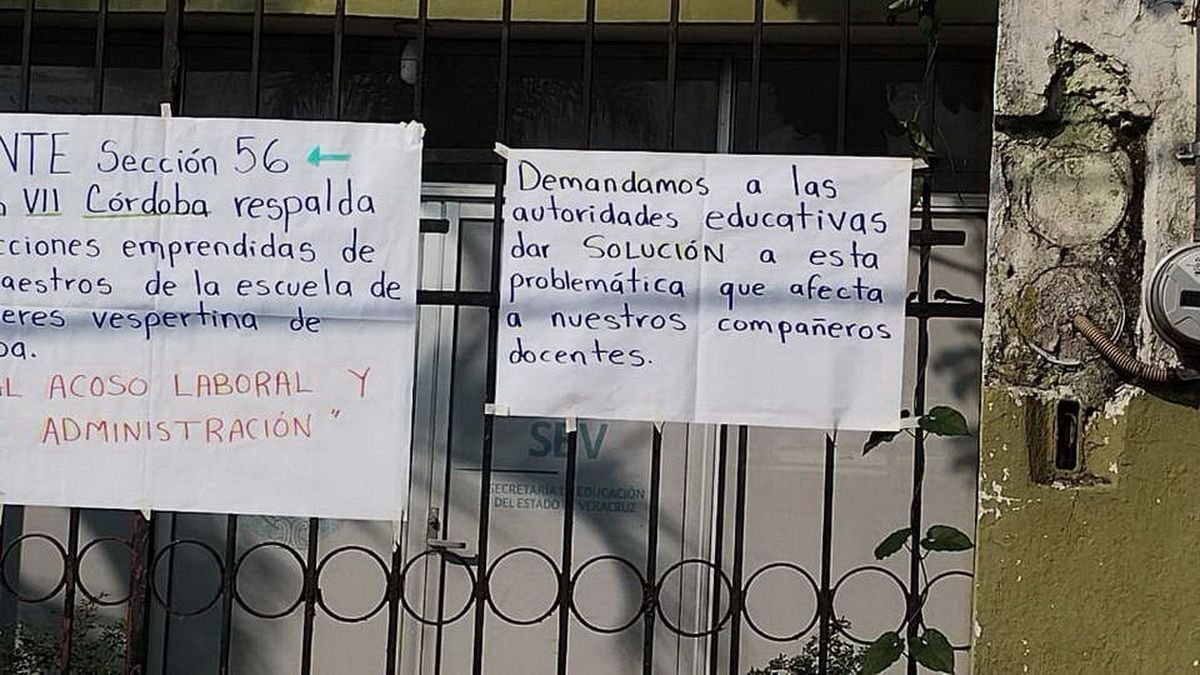 NTE Sección 56
VII Córdoba respalda
cciones emprendidas de
aestros de la escuela de
eres vespertina de
ba.
AL ACOSO LABORAL Y
ADMINISTRACIÓN"
Demandamos a las
autoridades educativas
dar SOLUCIÓN a esta
problemática que afecta
a nuestros compañeros
docentes.
SEV
SECRETARÍA DE EDUCACIÓN
DEL ESTADO DE VERACRUZ